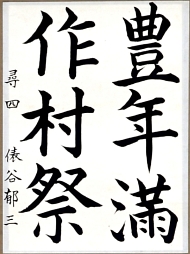 豊年満
作村祭
尋四 俵谷郁三